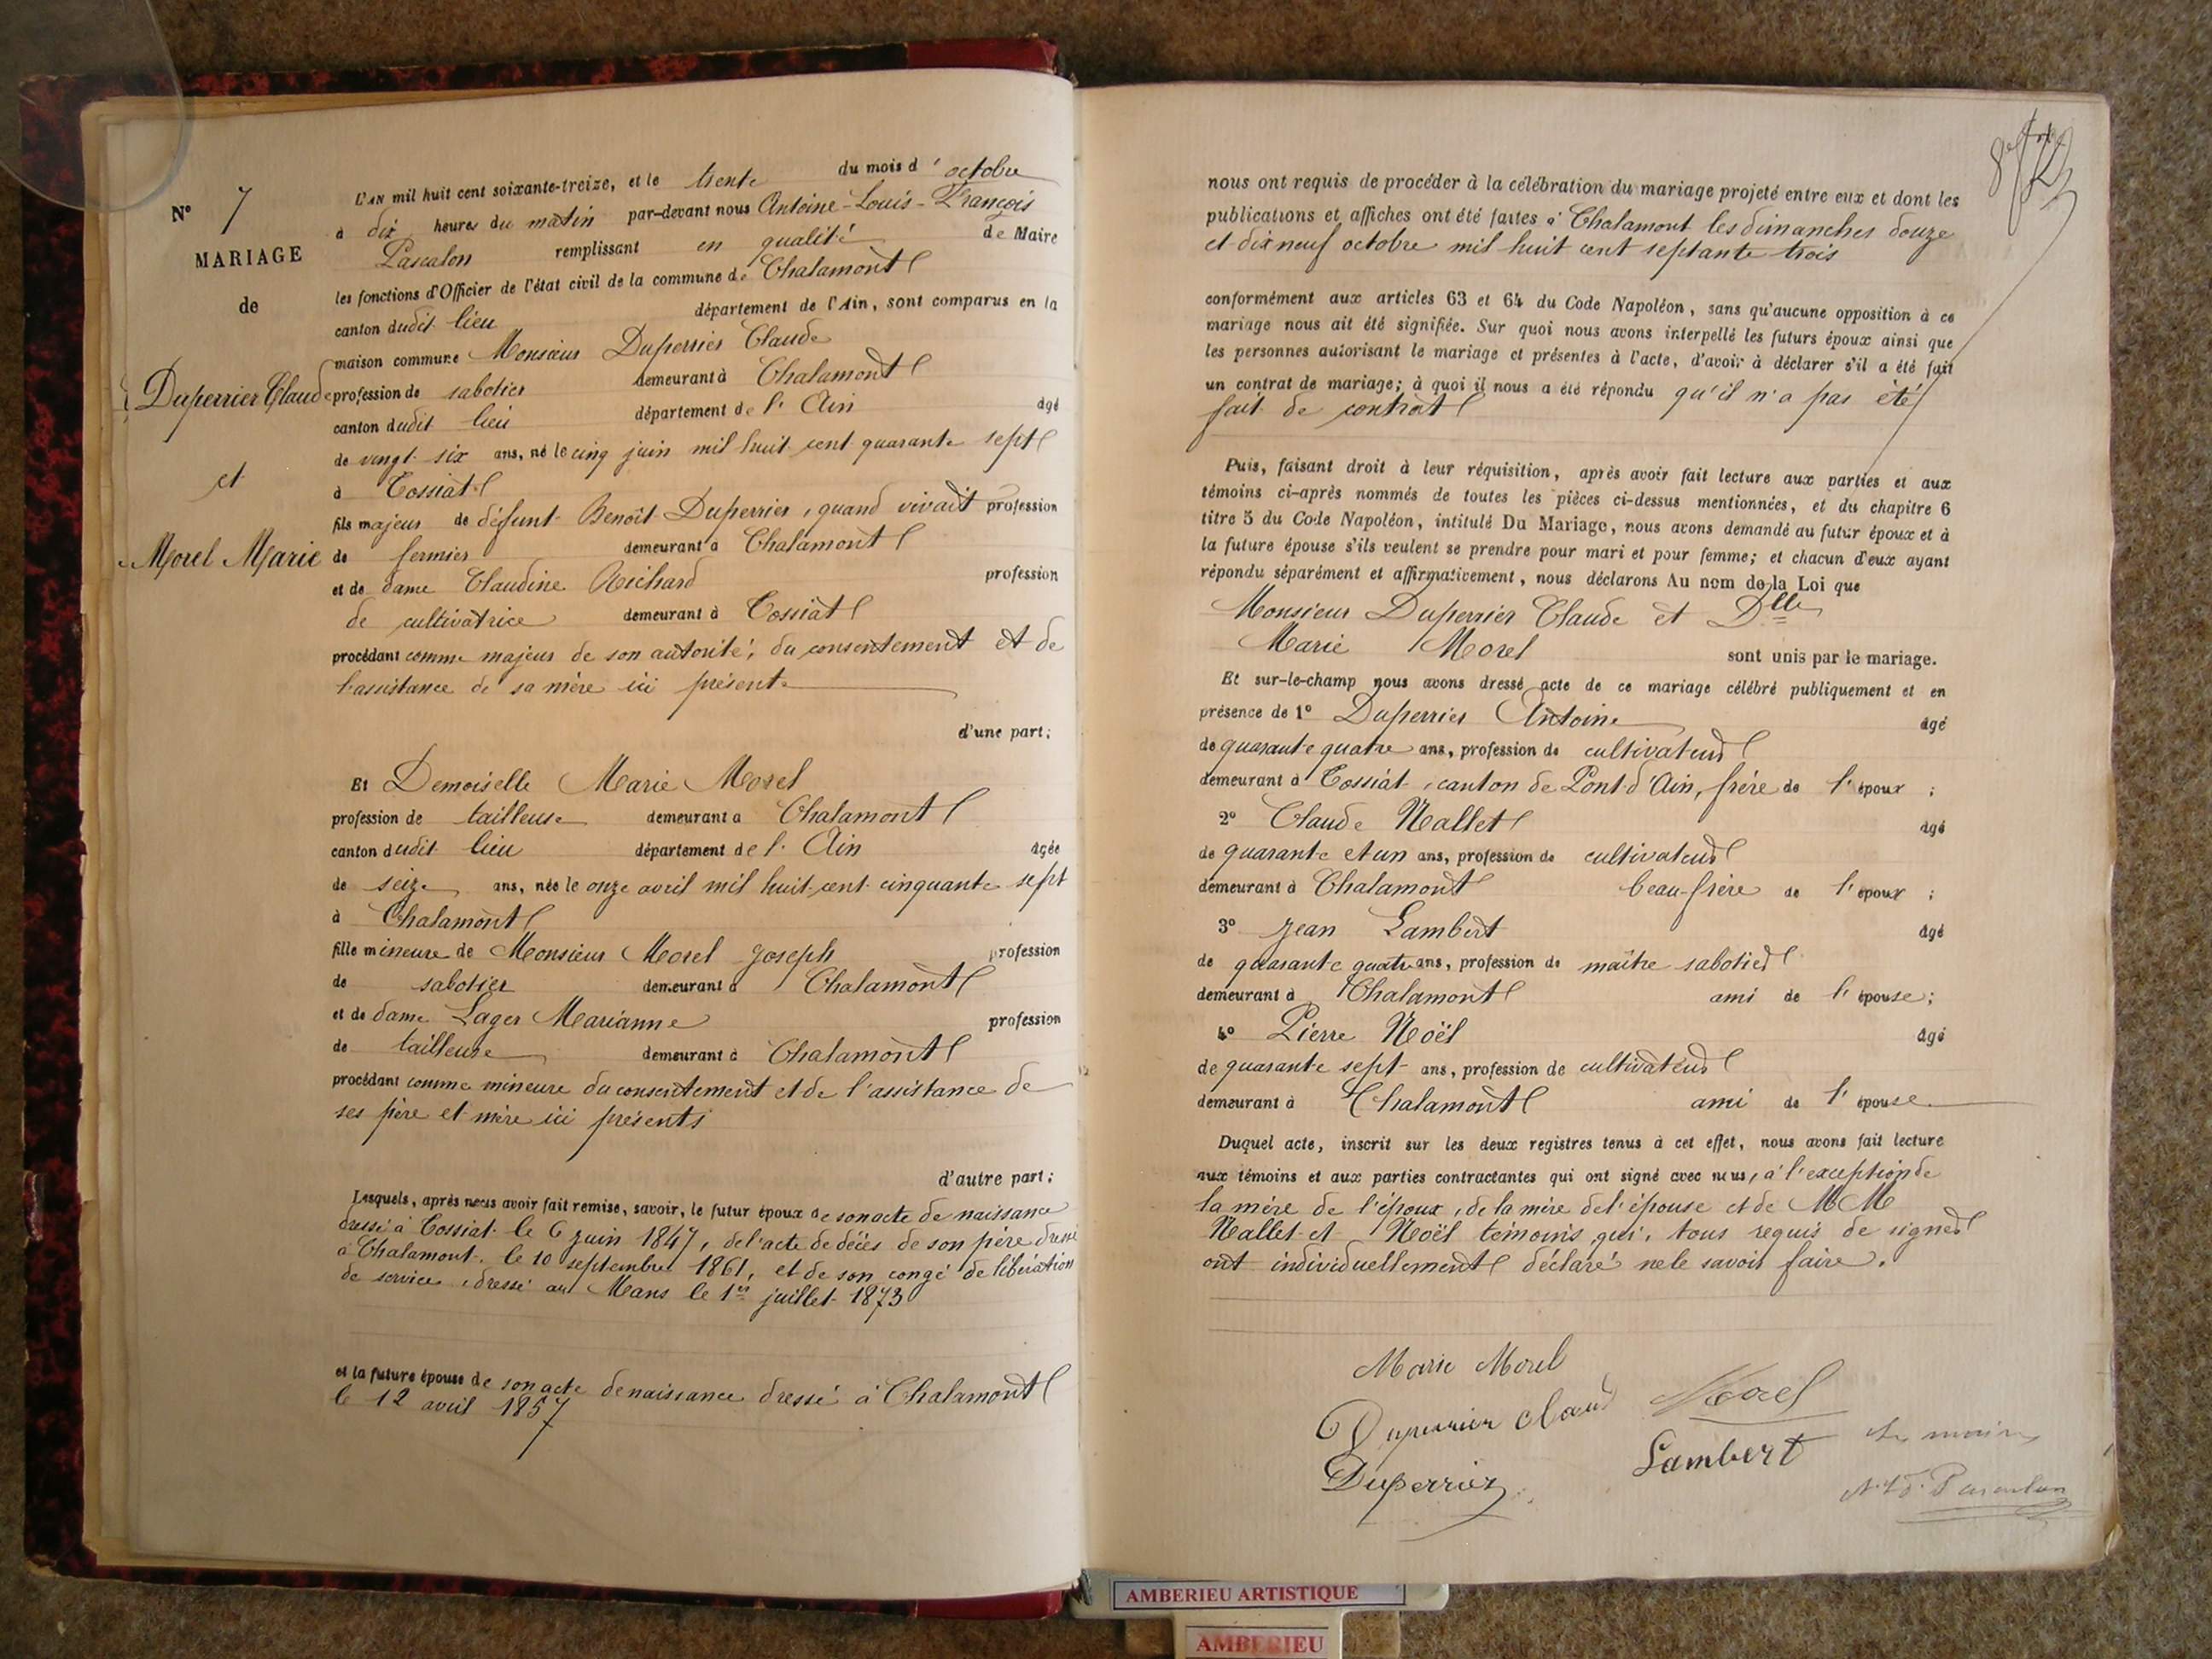 N° 7
MARIAGE
de
Duperrier Claude
et
Morel Marie
L'AN mil huit cent soixante-treize, et le trente du mois d'octobre
à dix heures du matin par-devant nous Antoine-Louis-François
Pascalon remplissant en qualité de Maire
les fonctions d'Officier de l'état civil de la commune de Chalamont
canton dudit lieu département de l'Ain, sont comparus en la
maison commune Monsieur Duperrier Claude
profession de sabotier demeurant à Chalamont
canton dudit lieu département de l'Ain âgé
de vingt six ans, né le cinq juin mil huit cent quarante sept
à Tossiat
fils majeur de défunt Benoît Duperrier, quand vivait profession
de fermier demeurant à Chalamont
et de dame Claudine Richard profession
de cultivatrice demeurant à Tossiat
procédant comme majeur de son autorité, du consentement et de
l'assistance de sa mère ici présente
d'une part;
Et Demoiselle Marie Morel
profession de tailleuse demeurant à Chalamont
canton dudit lieu département de l'Ain âgée
de seize ans, née le onze avril mil huit cent cinquante sept
à Chalamont
fille mineure de Monsieur Morel Joseph profession
de sabotier demeurant à Chalamont
et de dame Lager Marianne profession
de tailleuse demeurant à Chalamont
procédant comme mineure du consentement et de l'assistance de
ses père et mère ici présents
d'autre part;
Lesquels, après nous avoir fait remise, savoir, le futur époux de son acte de naissance
dressé à Tossiat le 6 juin 1847, de l'acte de décès de son père dressé
à Chalamont le 10 septembre 1861, et de son congé de libération
de service, dressé au Mans le 1er juillet 1873
et la future épouse de son acte de naissance dressé à Chalamont
le 12 avril 1857
nous ont requis de procéder à la célébration du mariage projeté entre eux et dont les
publications et affiches ont été faites à Chalamont les dimanches douze
et dix neuf octobre mil huit cent septante trois
conformément aux articles 63 et 64 du Code Napoléon, sans qu'aucune opposition à ce
mariage nous ait été signifiée. Sur quoi nous avons interpellé les futurs époux ainsi que
les personnes autorisant le mariage et présentes à l'acte, d'avoir à déclarer s'il a été fait
un contrat de mariage; à quoi il nous a été répondu qu'il n'a pas été
fait de contrat
Puis, faisant droit à leur réquisition, après avoir fait lecture aux parties et aux
témoins ci-après nommés de toutes les pièces ci-dessus mentionnées, et du chapitre 6
titre 5 du Code Napoléon, intitulé Du Mariage, nous avons demandé au futur époux et à
la future épouse s'ils veulent se prendre pour mari et pour femme; et chacun d'eux ayant
répondu séparément et affirmativement, nous déclarons Au nom de la Loi que
Monsieur Duperrier Claude et Dlle
Marie Morel sont unis par le mariage.
Et sur-le-champ nous avons dressé acte de ce mariage célébré publiquement et en
présence de 1° Duperrier Antoine âgé
de quarante quatre ans, profession de cultivateur
demeurant à Tossiat, canton de Pont d'Ain, frère de l'époux;
2° Claude Nallet âgé
de quarante et un ans, profession de cultivateur
demeurant à Chalamont beau-frère de l'époux;
3° Jean Lambert âgé
de quarante quatre ans, profession de maître sabotier
demeurant à Chalamont ami de l'épouse;
4° Pierre Noël âgé
de quarante sept ans, profession de cultivateur
demeurant à Chalamont ami de l'épouse
Duquel acte, inscrit sur les deux registres tenus à cet effet, nous avons fait lecture
aux témoins et aux parties contractantes qui ont signé avec nous, à l'exception de
la mère de l'époux, de la mère de l'épouse et de MM
Nallet et Noël témoins qui, tous requis de signer
ont individuellement déclaré ne le savoir faire.
Marie Morel
Duperrier Claud Morel
Duperrier Lambert
Le maire
Pascalon
AMBERIEU ARTISTIQUE
AMBERIEU